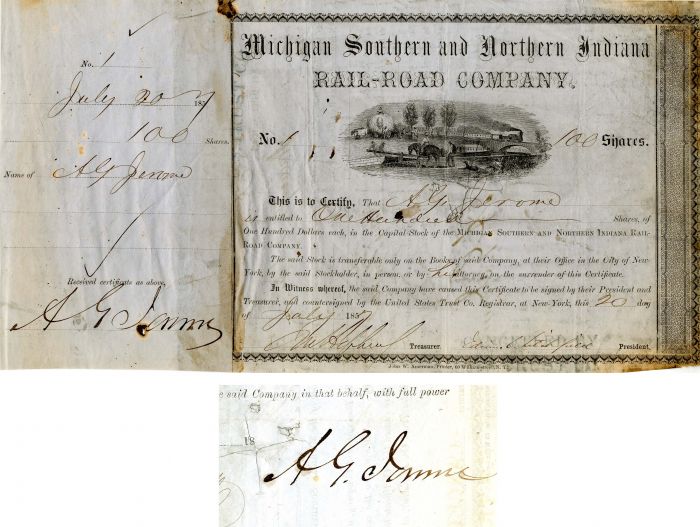 No. 1
July 20 1857
100 Shares.
Name of A G Jerome
Received certificate as above,
A G Jerome
Michigan Southern and Northern Indiana
RAIL-ROAD COMPANY.
No. 1 100 Shares.
This is to Certify, That A. G. Jerome
is entitled to One Hundred Shares, of
One Hundred Dollars each, in the Capital Stock of the MICHIGAN SOUTHERN AND NORTHERN INDIANA RAIL-
ROAD COMPANY.
The said Stock is transferable only on the Books of said Company, at their Office in the City of New-
York, by the said Stockholder, in person, or by his Attorney, on the surrender of this Certificate.
In Witness whereof, the said Company have caused this Certificate to be signed by their President and
Treasurer, and countersigned by the United States Trust Co. Registrar, at New-York, this 20 day
of July 1857
Treasurer. President.
John W. Amerman, Printer, 60 William-street, N. Y.
e said Company in that behalf, with full power
18
A G. Jerome